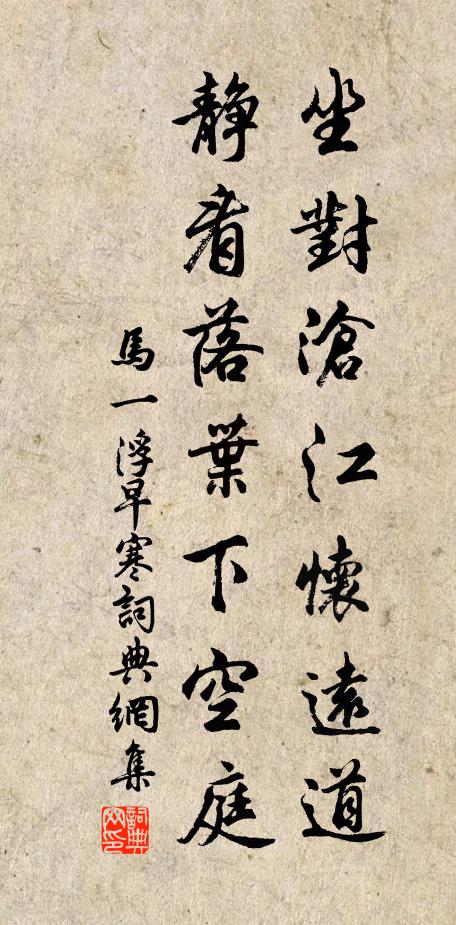 坐對滄江懷遠道
静看落葉下空庭
馬一浮早寒詞典網集
詞典网印